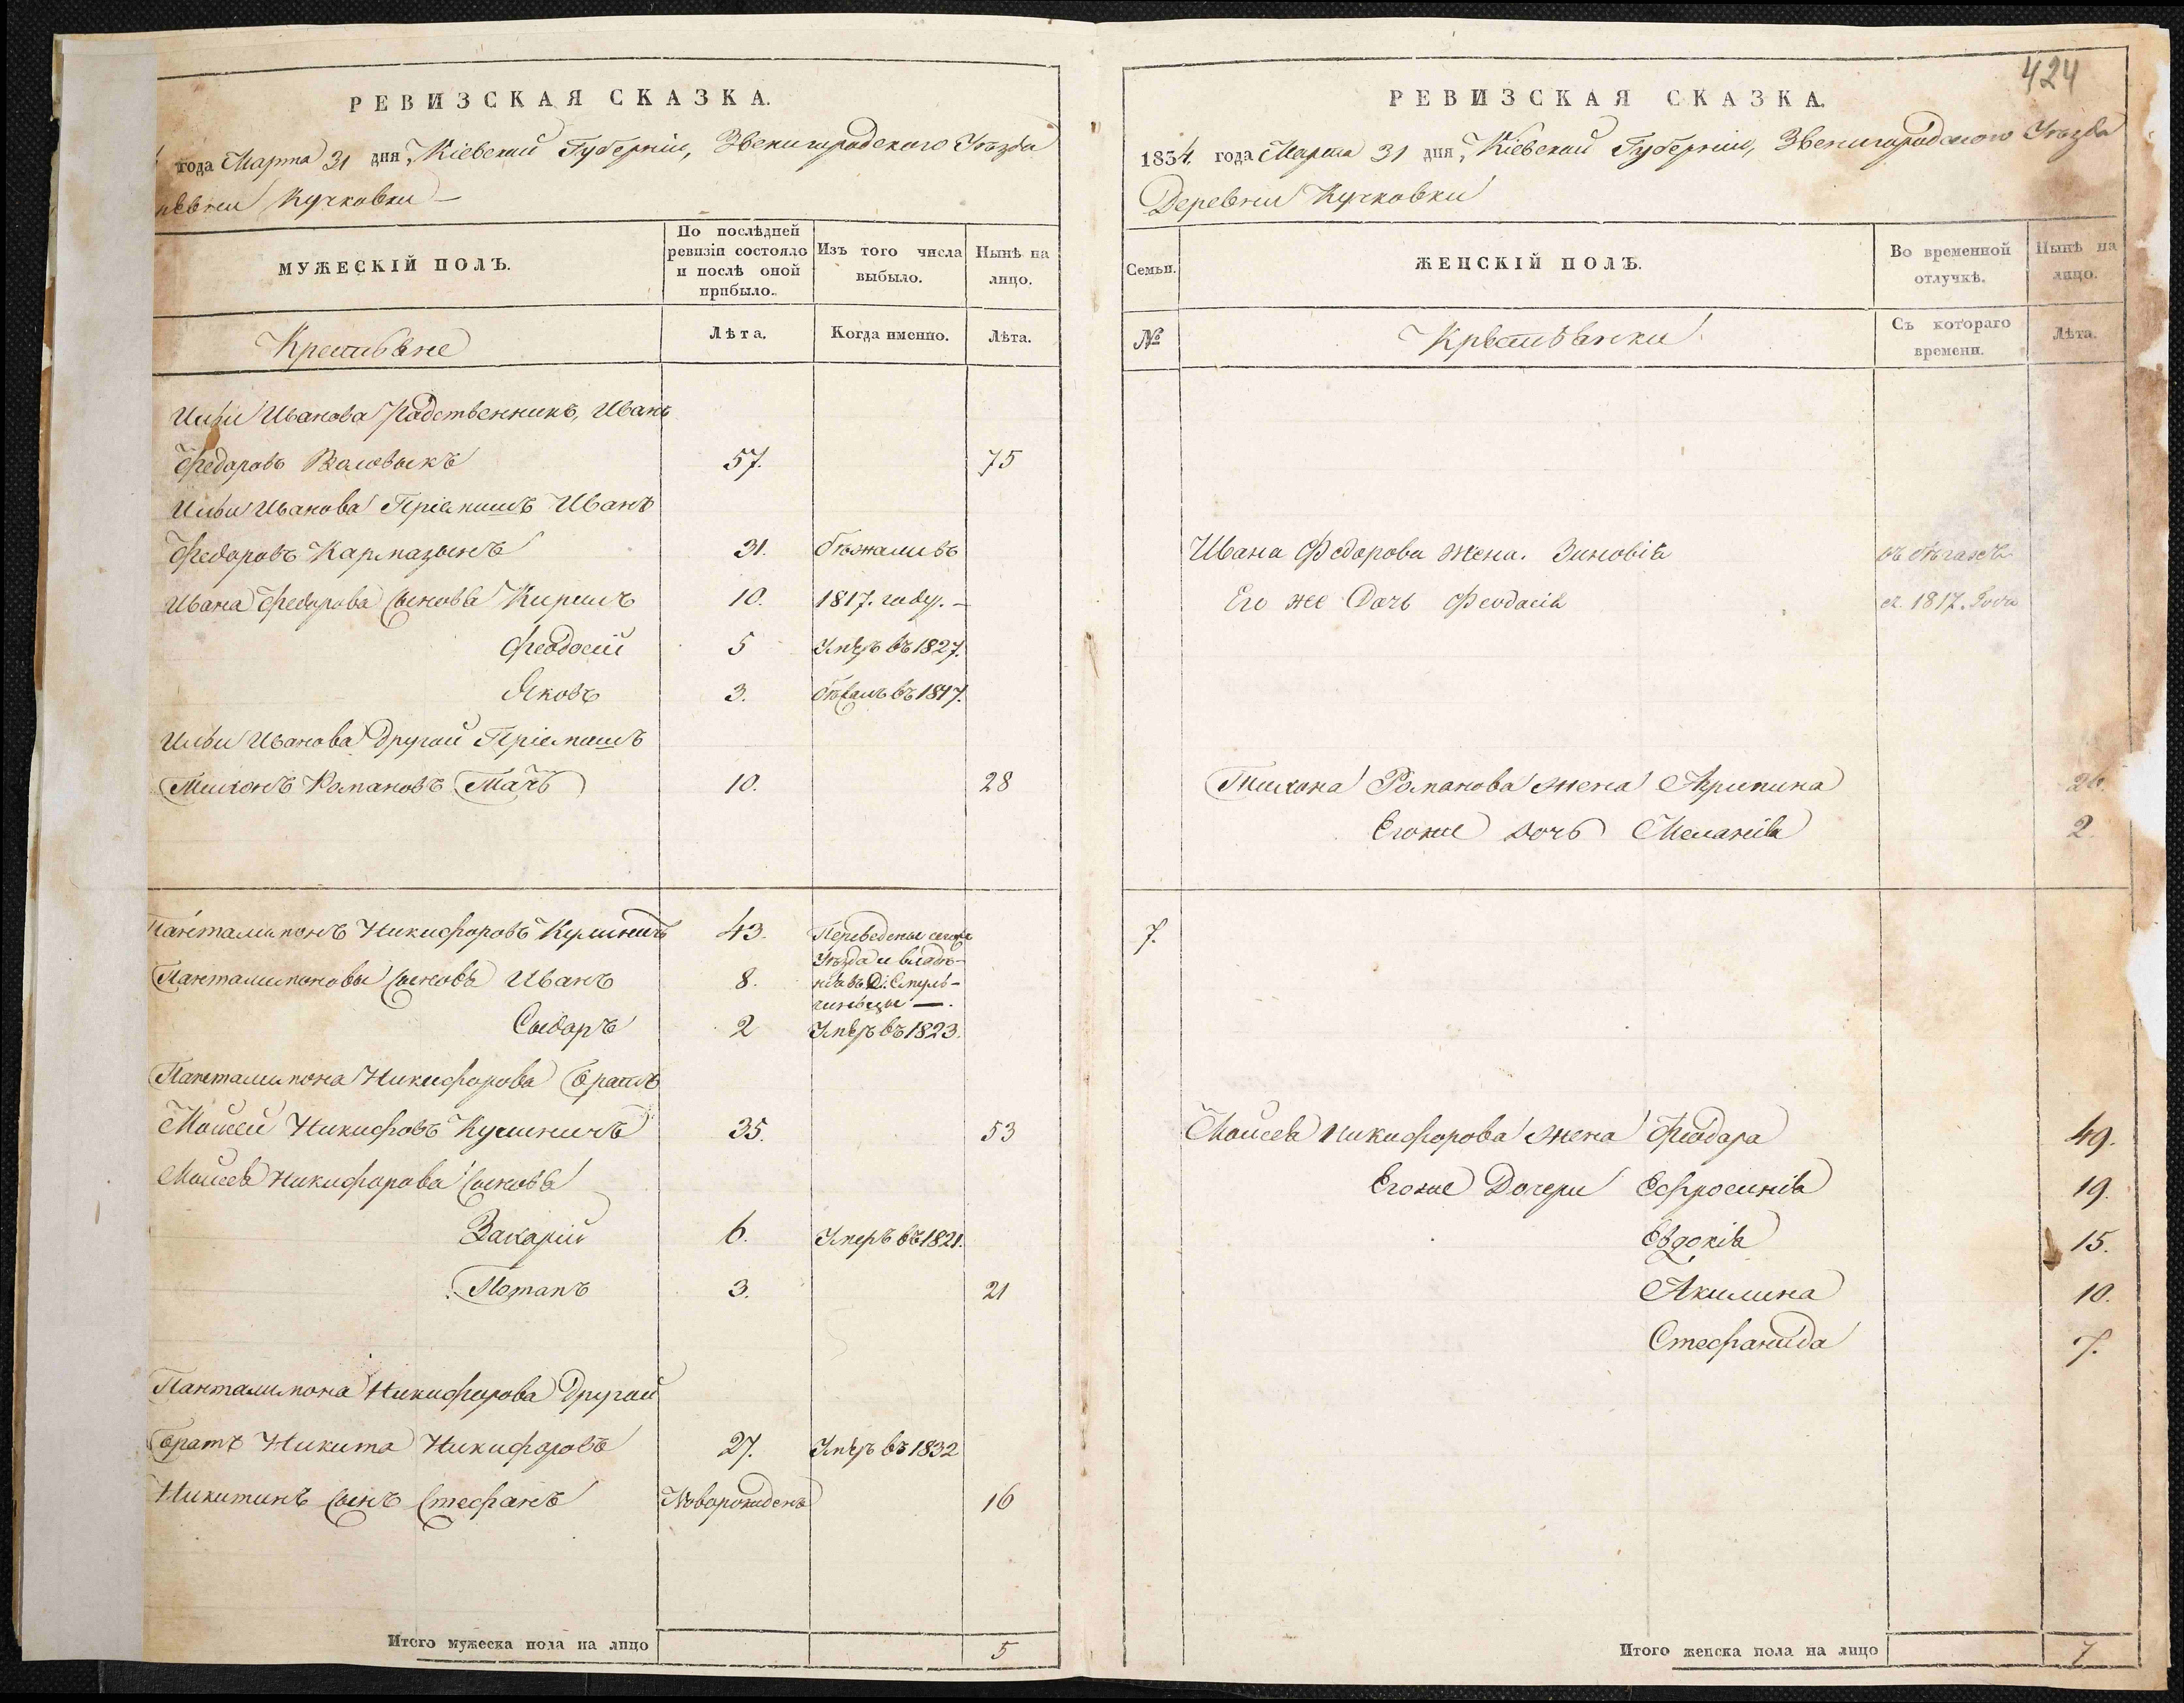 РЕВИЗСКАЯ СКАЗКА.
года Марта 31 дня, Кіевской Губерніи, Звенигородского Уѣзда
Кучковки —
МУЖЕСКІЙ ПОЛЪ.
По послѣдней ревизіи состояло и послѣ оной прибыло.
Изъ того числа выбыло.
Нынѣ на лицо.
Крестьяне
Лѣта.
Когда именно.
Лѣта.
Ильи Иванова Родственникъ, Иванъ
Федоровъ 57. 75
Ильи Иванова Пріемышъ Иванъ
Федоровъ Кармазынъ 31. бѣжали въ
Ивана Федорова сыновья Кирилъ 10. 1817. году. —
Феодосій 5 Умеръ въ 1827.
Яковъ 3. бѣжалъ въ 1817.
Ильи Иванова другой Пріемышъ
Тихонъ Романовъ Мачъ 10. 28
Панталимонъ Никифоровъ Кулиничъ 43. Переведены сегоже
Уѣзда и владѣ-
Панталимоновы сыновья Иванъ 8. нія въ Д:
Сыдоръ 2 Умеръ въ 1823.
Панталимона Никифорова братъ
Моисей Никифовъ Кулиничъ 35. 53
Моисея Никифорова сыновья
Захарій 6. Умеръ въ 1821.
Потапъ 3. 21
Панталимона Никифорова другой
братъ Никита Никифоровъ 27. Умеръ въ 1832
Никитинъ сынъ Стефанъ Новорожденъ 16
Итого мужеска пола на лицо 5
424
РЕВИЗСКАЯ СКАЗКА.
1834. года Марта 31 дня, Кіевской Губерніи, Звенигородского Уѣзда
Деревни Кучковки
Семьи.
ЖЕНСКІЙ ПОЛЪ.
Во временной отлучкѣ.
Нынѣ на лицо.
№
Крестьянки
Съ котораго времени.
Лѣта.
Ивана Федорова жена. Зиновія въ бѣгахъ
Его же Дочь Феодосія съ 1817. Года
Тихона Романова жена Агрипина 26.
Егоже дочь Меланія 2.
7.
Моисея Никифорова жена Феодора 49.
Егоже Дочери Ефросинія 19.
Евдокія 15.
Акилина 10.
Стефанида 7.
Итого женска пола на лицо 7